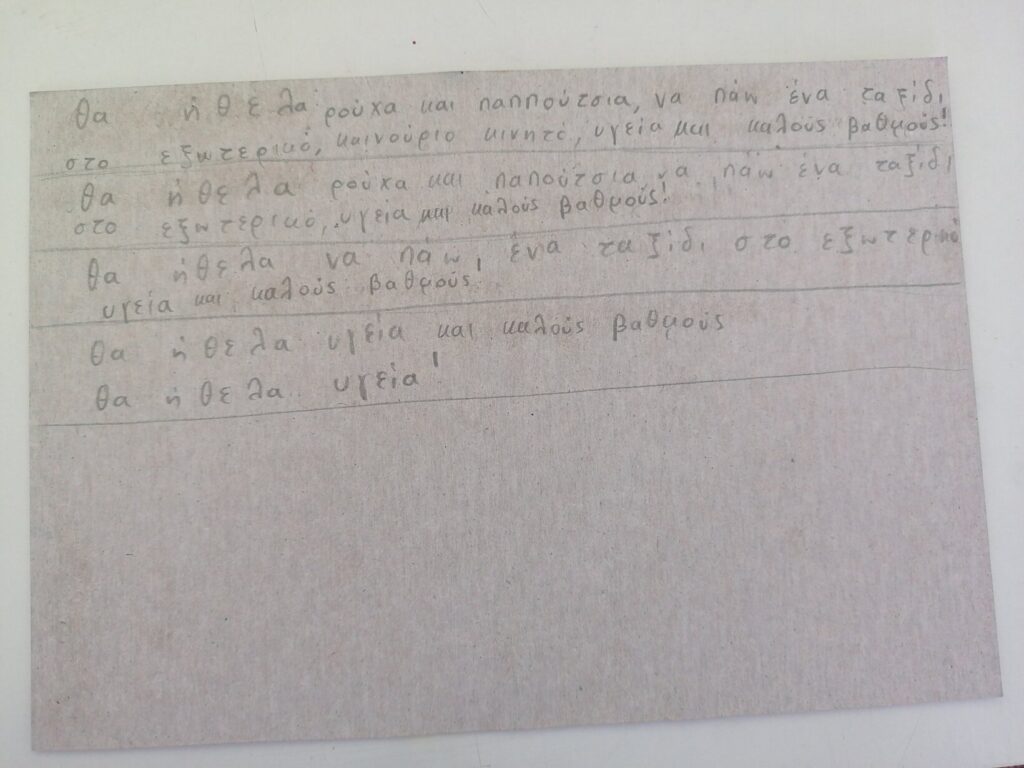 θα ήθελα ρούχα και παππούτσια, να πάω ένα ταξίδι
στο εξωτερικό, καινούριο κινητό, υγεία και καλούς βαθμούς!
θα ήθελα ρούχα και παπούτσια να πάω ένα ταξίδι
στο εξωτερικό, υγεία και καλούς βαθμούς!
θα ήθελα να πάω ένα ταξίδι στο εξωτερικό
υγεία και καλούς βαθμούς!
θα ήθελα υγεία και καλούς βαθμούς
θα ήθελα υγεία!